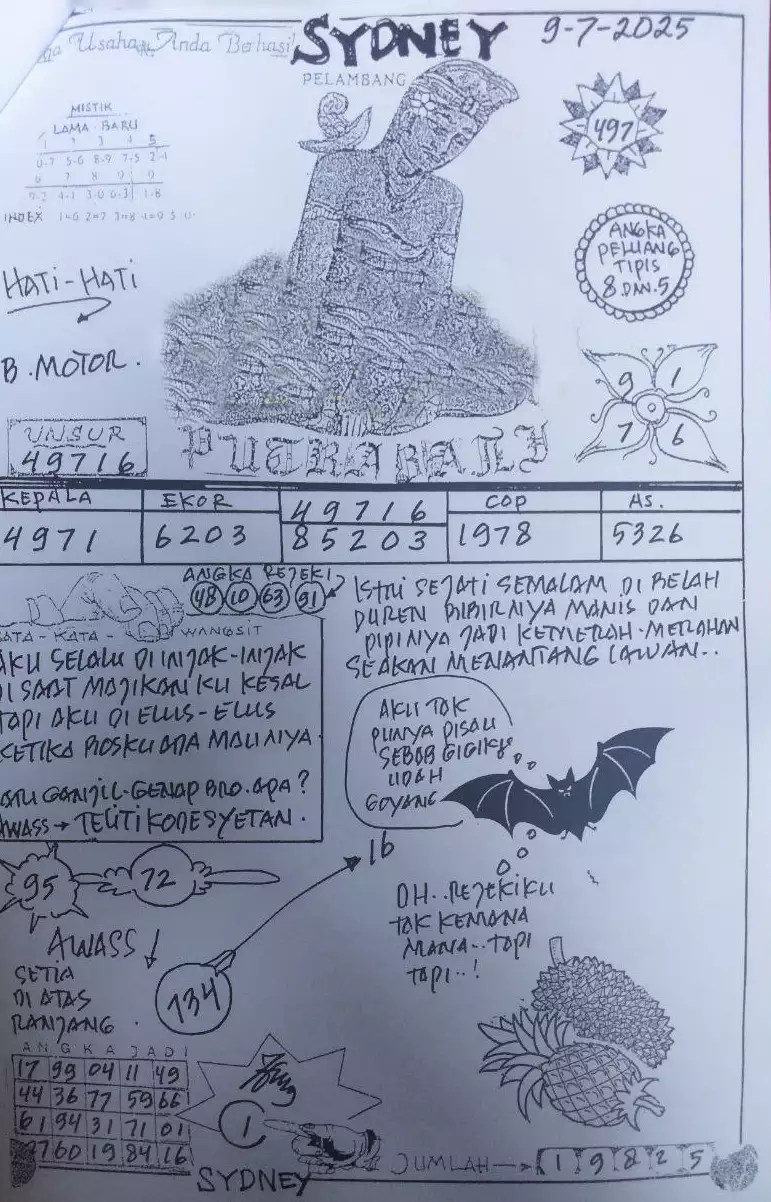 Usaha Anda Berhasil
SYDNEY
9-7-2025
PELAMBANG
MISTIK
LAMA-BARU
1 2 3 4 5
0-7 5-6 8-9 7-5 2-1
6 7 8 9 9
9-2 4-1 3-0 6-3 1-8
INDEX 1=6 2=7 3=8 4=9 5=0
497
ANGKA
PELUANG
TIPIS
8 DAN 5
HATI-HATI
B. MOTOR.
9 1
7 6
UNSUR
49716
PUTRA BALI
KEPALA EKOR 49716 COP AS.
4971 6203 85203 1978 5326
ANGKA REJEKI
48 10 63 91
KATA-KATA-WANGSIT
AKU SELALU DI INJAK-INJAK
DI SAAT MAJIKAN KU KESAL
TAPI AKU DI ELUS-ELUS
KETIKA BOSKU ADA MAUNYA.
SATU GANJIL-GENAP BRO. APA?
AWASS → TELITI KODE SYETAN.
ISTRI SEJATI SEMALAM DI BELAH
DUREN BIBIRNYA MANIS DAN
PIPINYA JADI KEMERAH-MERAHAN
SEAKAN MENANTANG LAWAN..
AKU TAK
PUNYA PISAU
SEBAB GIGIKU
UDAH
GOYANG
16
95
72
OH..REJEKIKU
TAK KEMANA
MANA..TAPI
TAPI..!
AWASS!
SETIA
DI ATAS
RANJANG.
734
ANGKA JADI
17 99 04 11 49
44 36 77 59 66
61 94 31 71 01
97 60 19 84 16
1
SYDNEY
JUMLAH → 19825